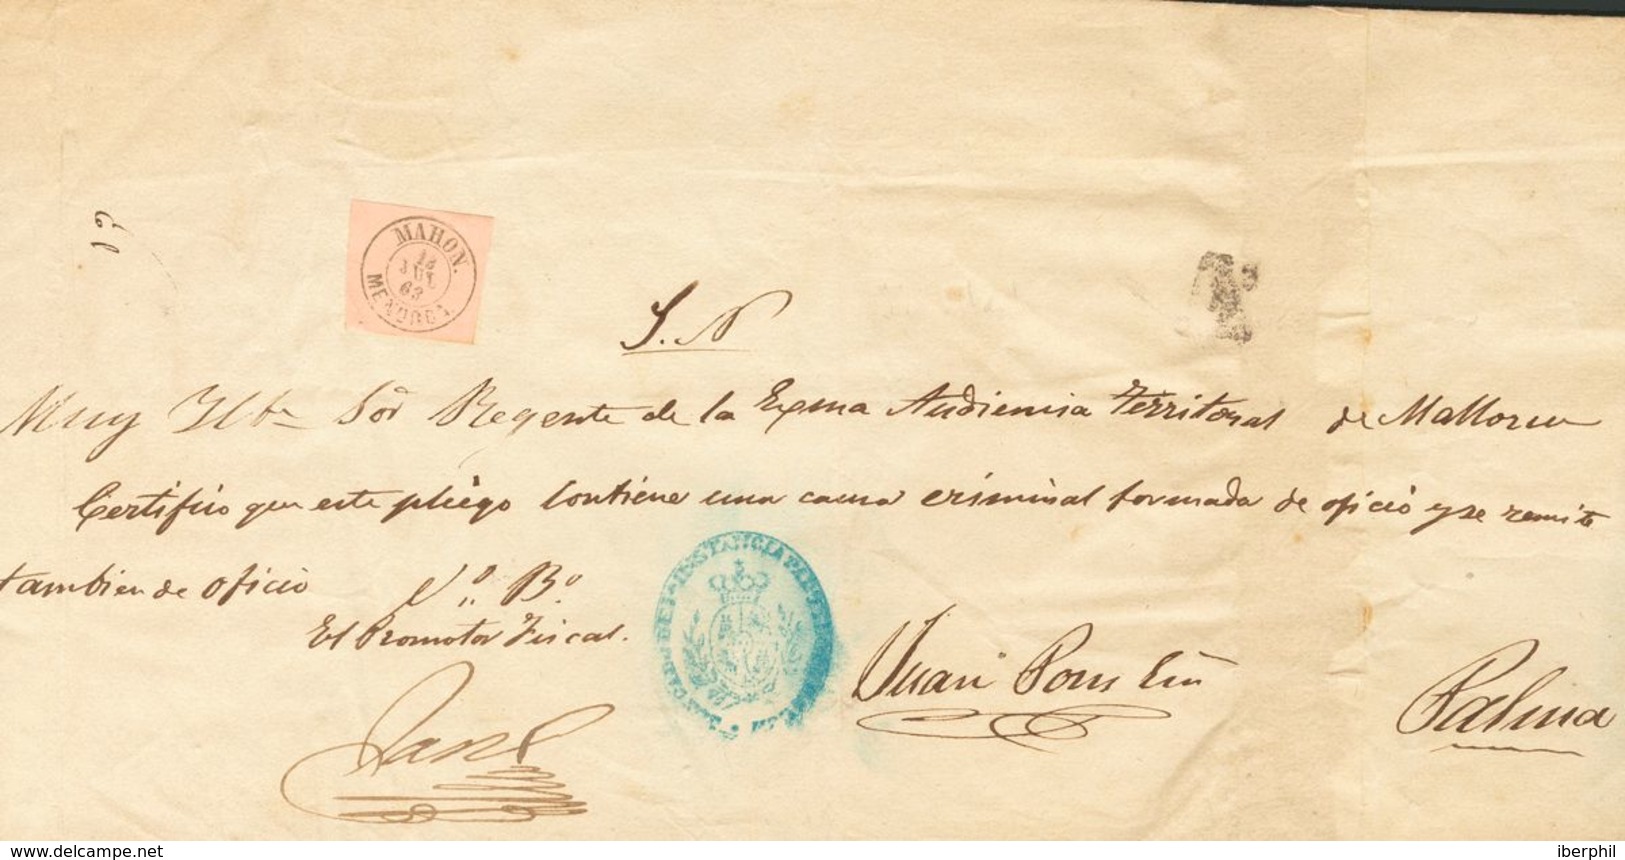 61
MAHON.
14
JUL
63
MENORCA.
S. N
Muy Ilte Sor Regente de la Exma Audiencia Territorial de Mallorca
Certifico que este pliego contiene una causa criminal formada de oficio y se remite
tambien de oficio
Vo. Bo.
El Promotor Fiscal.
Juan Pons Ess
Palma
delcampe.net
iberphil